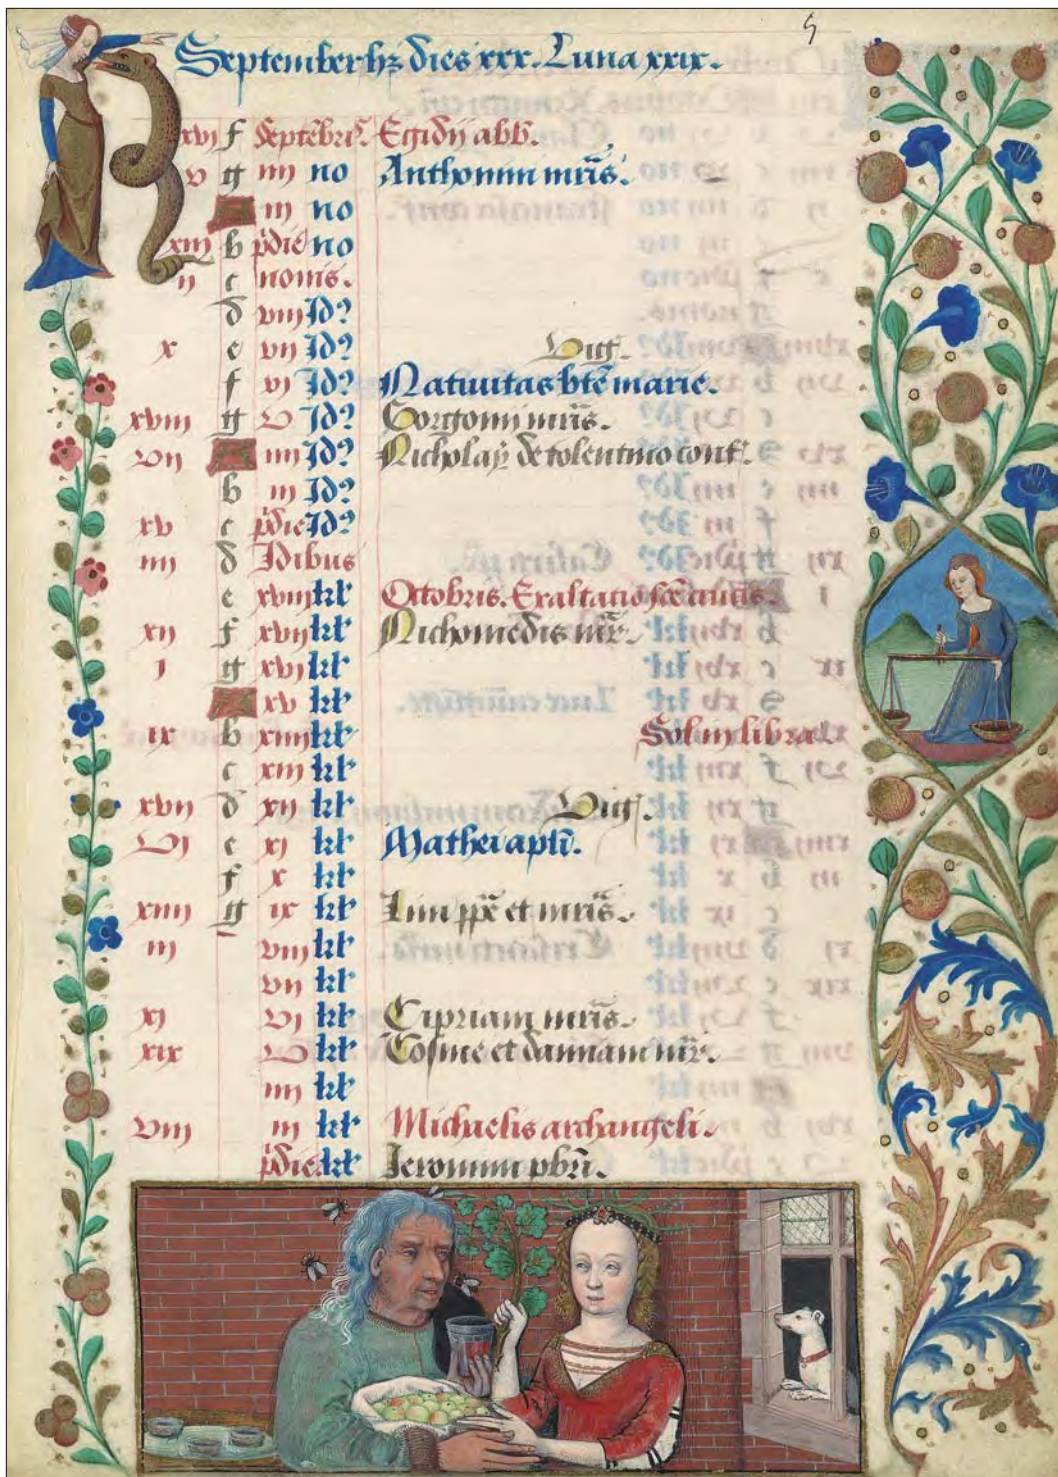 5
September hz dies xxx. Luna xxix.
xvj f Septēbris. Egidij abb.
v g iiij no Anthonini mr̄is.
A iij no
xiij b p̄die no
ij c nonis.
d viij Id?
x e vij Id? Vig.
f vj Id? Natiuitas bt̄e marie.
xviij g v Id? Gorgonij mr̄is.
vij A iiij Id? Nicholay de tolentino conf.
b iij Id?
xv c p̄die Id?
iiij d Idibus
e xviij kl' Octobris. Exaltacio sc̄e crucis.
xij f xvij kl' Nichomedis mr̄.
j g xvj kl'
A xv kl'
ix b xiiij kl' Sol in libra.
c xiij kl'
xvij d xij kl' Vig.
vj e xj kl' Mathei apl̄i.
f x kl'
xiiij g ix kl' Lini pp̄e et mr̄is.
iij viij kl'
vij kl'
xj vj kl' Cipriani mr̄is.
xix v kl' Cosme et damiani mr̄.
iiij kl'
viij iij kl' Michaelis archangeli.
p̄die kl' Ieronimi pbr̄i.